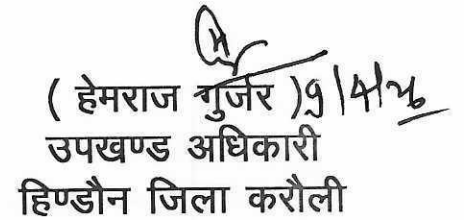 ( हेमराज गुर्जर )9/4/26
उपखण्ड अधिकारी
हिण्डौन जिला करौली